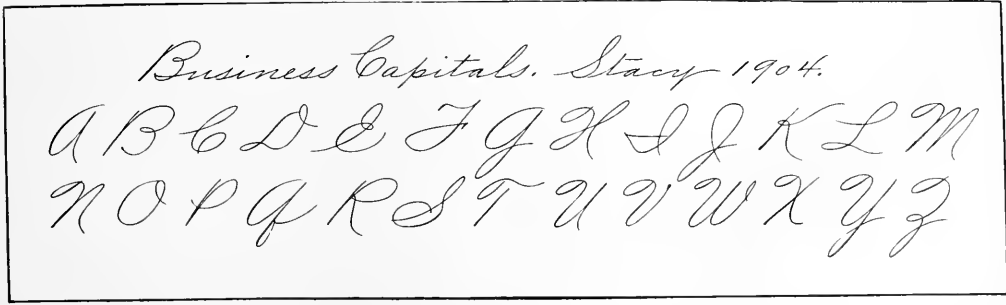 Business Capitals. Stacy 1904.
A B C D E F G H I J K L M
N O P Q R S T U V W X Y Z